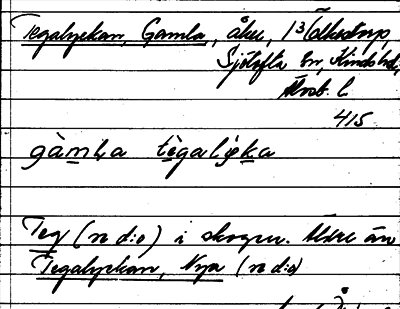 Tegalyckan, Gamla, åker, 1³
Sjötofta sn, Kinds hd,
Älvsb. l.
415
gàmḷa tègalýka
Teg (n d:o) i skogen. Äldre än
Tegalyckan, Nya (n d:o)